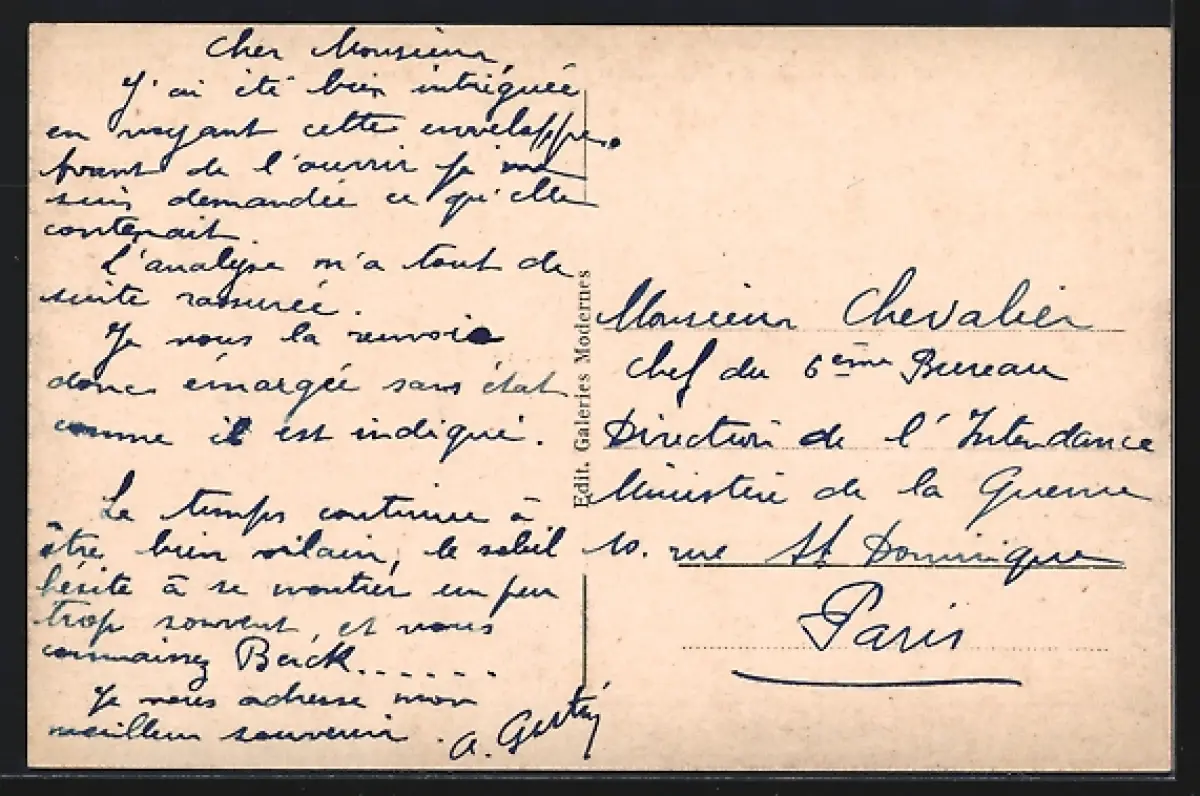 Cher Monsieur,
J'ai été bien intriguée
en voyant cette enveloppe.
Avant de l'ouvrir je me
suis demandée ce qu'elle
contenait.
L'analyse m'a tout de
suite rassurée.
Je vous la renvoie
donc émargée sans état
comme il est indiqué.
Le temps continue à
être bien vilain, le soleil
hésite à se montrer un peu
trop souvent, et vous
connaissez Berck......
Je vous adresse mon
meilleur souvenir.
A.
Edit. Galeries Modernes
Monsieur Chevalier
Chef du 6ème Bureau
Direction de l'Intendance
Ministère de la Guerre
10. rue St Dominique
Paris